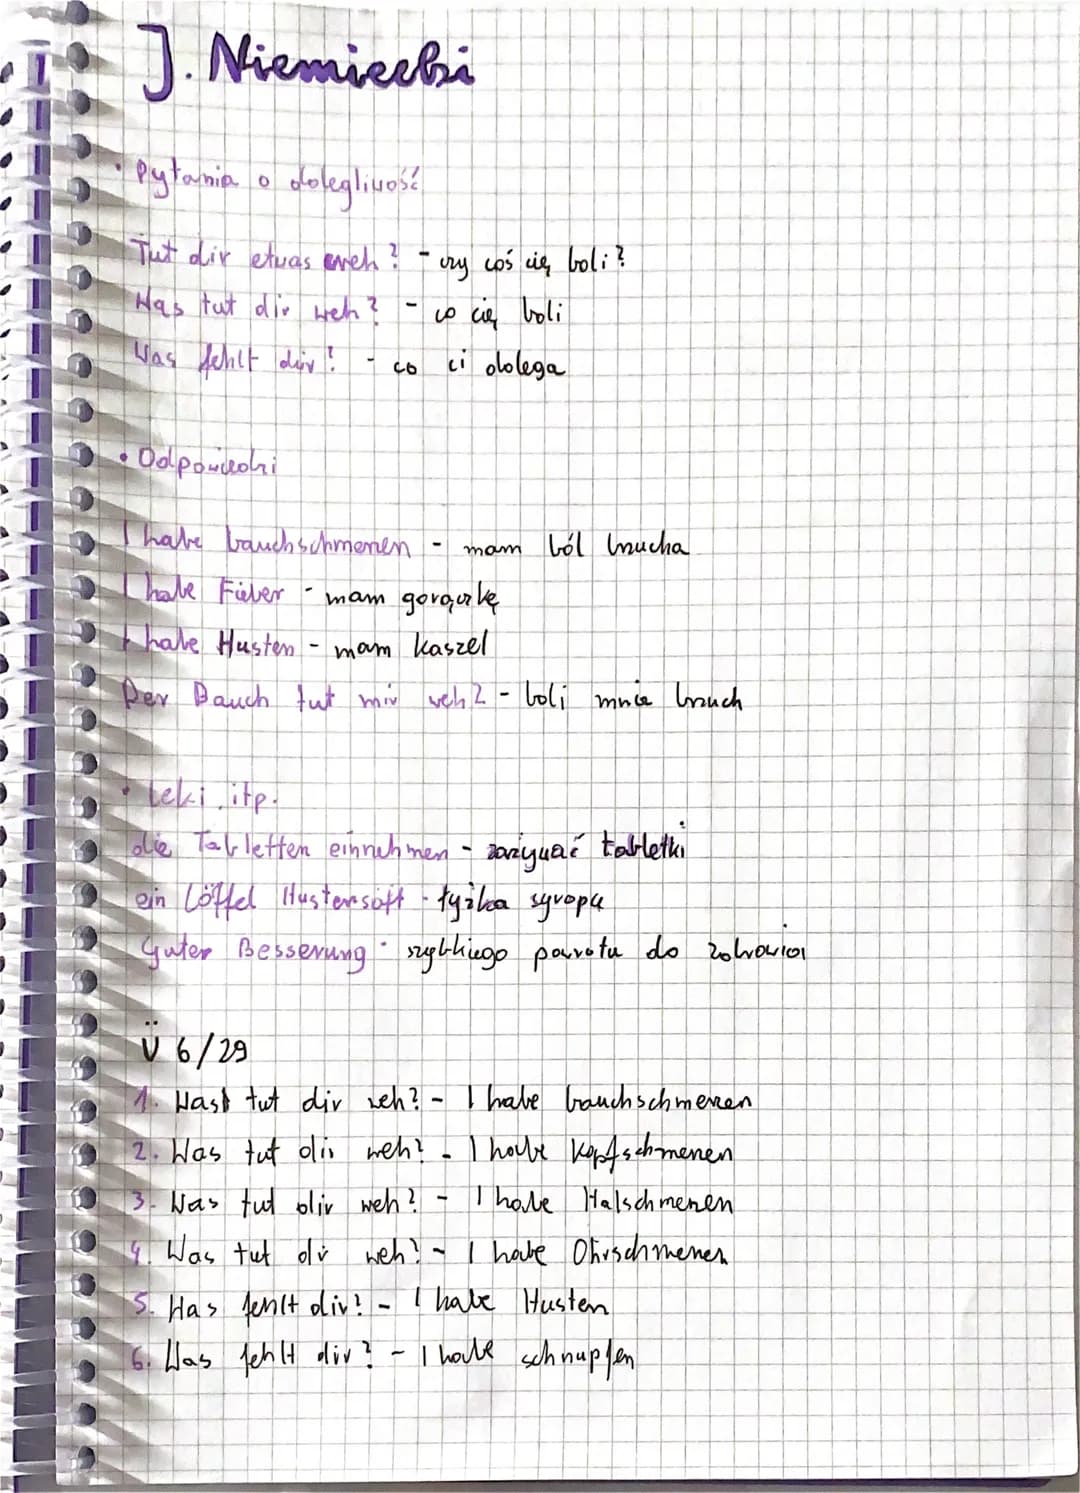 J. Niemiecki
• Pytania o dolegliwość
Tut dir etwas weh? - czy coś cię boli?
Was tut dir weh? - co cię boli
Was fehlt dir? - co ci dolega
• Odpowiedzi
I habe bauchschmerzen - mam ból brzucha
I habe Fieber - mam gorączkę
I habe Husten - mam kaszel
Der Bauch tut mir weh? - boli mnie brzuch
• Leki itp.
die Tabletten einnehmen - zażywać tabletki
ein Löffel Hustensaft - łyżka syropu
Guter Besserung - szybkiego powrotu do zdrowia
Ü 6/29
1. Was tut dir weh? - I habe bauchschmerzen
2. Was tut dir weh? - I habe Kopfschmerzen
3. Was tut dir weh? - I habe Halschmerzen
4. Was tut dir weh? - I habe Ohrschmerzen
5. Was fehlt dir? - I habe Husten
6. Was fehlt dir? - I habe schnupfen